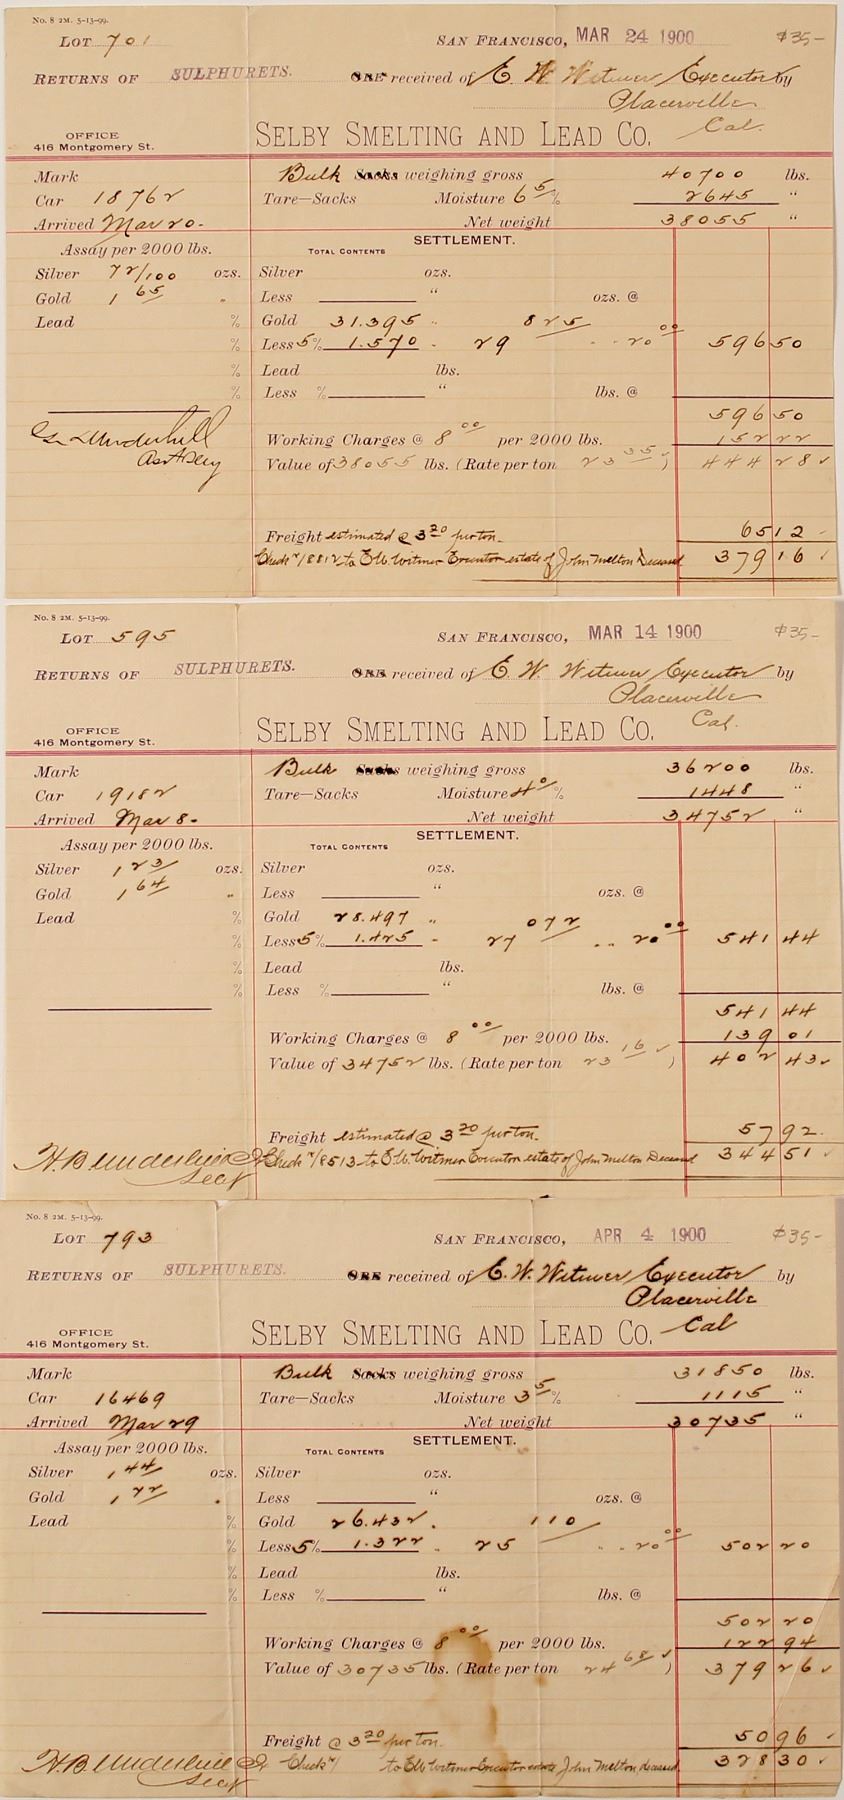 No. 8 2M. 5-13-99.
LOT 701
SAN FRANCISCO, MAR 24 1900
$35-
RETURNS OF SULPHURETS. ORE received of E. W. Witmer Executor by
Placerville
Cal.
OFFICE
416 Montgomery St.
SELBY SMELTING AND LEAD CO.
Mark
Bulk Sacks weighing gross 40700 lbs.
Car 18762
Tare—Sacks Moisture 6 5/ % 2645 "
Arrived Mar 20-
Net weight 38055 "
Assay per 2000 lbs.
SETTLEMENT.
TOTAL CONTENTS
Silver 72/100 ozs.
Silver ozs.
Gold 1 65 "
Less " ozs. @
Lead %
Gold 31.395 " 825
% Less 5% 1.570 " 29 " " 20 00 596 50
% Lead lbs.
% Less % " lbs. @
596 50
Working Charges @ 8 00 per 2000 lbs. 152 22
Value of 38055 lbs. (Rate per ton 23 35 ✓) 444 28 ✓
Underhill
Asst Secy
Freight estimated @ 3 20 per ton. 65 12 ✓
Check #18812 to E.W. Witmer Executor estate of John Melton Deceased 379 16 ✓
No. 8 2M. 5-13-99.
LOT 595
SAN FRANCISCO, MAR 14 1900
$35-
RETURNS OF SULPHURETS. ORE received of E. W. Witmer Executor by
Placerville
Cal.
OFFICE
416 Montgomery St.
SELBY SMELTING AND LEAD CO.
Mark
Bulk Sacks weighing gross 36200 lbs.
Car 19182
Tare—Sacks Moisture 4 0/ % 1448 "
Arrived Mar 8-
Net weight 34752 "
Assay per 2000 lbs.
SETTLEMENT.
TOTAL CONTENTS
Silver 1 23 ozs.
Silver ozs.
Gold 1 64 "
Less " ozs. @
Lead %
Gold 28.497 " 072
% Less 5% 1.425 " 27 " " 20 00 541 44
% Lead lbs.
% Less % " lbs. @
541 44
Working Charges @ 8 00 per 2000 lbs. 139 01
Value of 34752 lbs. (Rate per ton 23 16 ✓) 402 43 ✓
Freight estimated @ 3 20 per ton. 57 92
H. B. Underhill Jr
Secy
Check #18513 to E.W. Witmer Executor estate of John Melton Deceased 344 51 ✓
No. 8 2M. 5-13-99.
LOT 793
SAN FRANCISCO, APR 4 1900
$35-
RETURNS OF SULPHURETS. ORE received of E. W. Witmer Executor by
Placerville
Cal
OFFICE
416 Montgomery St.
SELBY SMELTING AND LEAD CO.
Mark
Bulk Sacks weighing gross 31850 lbs.
Car 16469
Tare—Sacks Moisture 3 5/ % 1115 "
Arrived Mar 29
Net weight 30735 "
Assay per 2000 lbs.
SETTLEMENT.
TOTAL CONTENTS
Silver 1 44 ozs.
Silver ozs.
Gold 1 72 "
Less " ozs. @
Lead %
Gold 26.432 " 110
% Less 5% 1.322 " 25 " " 20 00 502 20
% Lead lbs.
% Less % " lbs. @
502 20
Working Charges @ 8 00 per 2000 lbs. 122 94
Value of 30735 lbs. (Rate per ton 24 68 ✓) 379 26 ✓
Freight @ 3 20 per ton. 50 96 ✓
H. B. Underhill Jr
Secy
Check # to E.W. Witmer Executor estate John Melton deceased 328 30 ✓